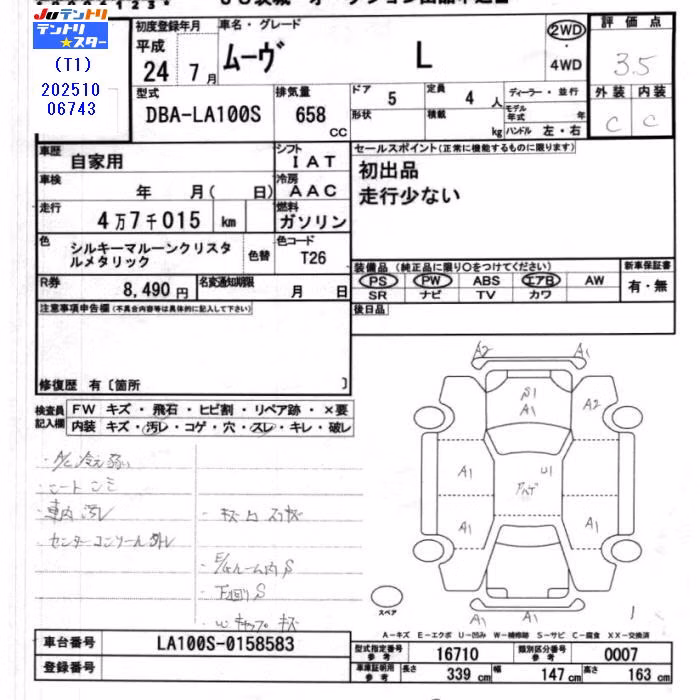 JUテントリ
テントリ★スター
(T1)
202510
06743
初度登録年月
平成
24 7月
車名・グレード
ムーヴ L
2WD
・
4WD
評価点
3.5
型式
DBA-LA100S
排気量
658 CC
ドア 5
定員 4 人
形状
積載 kg
ディーラー・並行
モデル年式 年
ハンドル 左・右
外装 内装
C C
車歴 自家用
シフト IAT
車検 年 月( 日)
冷房 AAC
走行 4万7千015 km
燃料 ガソリン
色 シルキーマルーンクリスタルメタリック
色替
色コード T26
R券 8,490円
名変通知期限 月 日
セールスポイント(正常に機能するものに限ります)
初出品
走行少ない
装備品(純正品に限り○をつけてください)
PS PW ABS エアB AW
SR ナビ TV カワ
新車保証書
有・無
後日品
注意事項申告欄(不具合内容等は具体的に記入して下さい)
修復歴 有〔箇所 〕
検査員記入欄
FW キズ・飛石・ヒビ割・リペア跡・×要
内装 キズ・汚レ・コゲ・穴・スレ・キレ・破レ
・A/C冷え弱い
・シートシミ
・車内汚レ
・センターコンソール外レ
・E/Gルーム内S
・下回りS
A2 A1
S1
A1
A2
A1
U1
A1
A1
A1
A1 A1
スペア
1
A-キズ E-エクボ U-凹み W-補修跡 S-サビ C-腐食 XX-交換済
車台番号 LA100S-0158583
登録番号
型式指定番号 参考 16710
類別区分番号 参考 0007
車庫証明用 参考 長さ 339 cm 幅 147 cm 高さ 163 cm